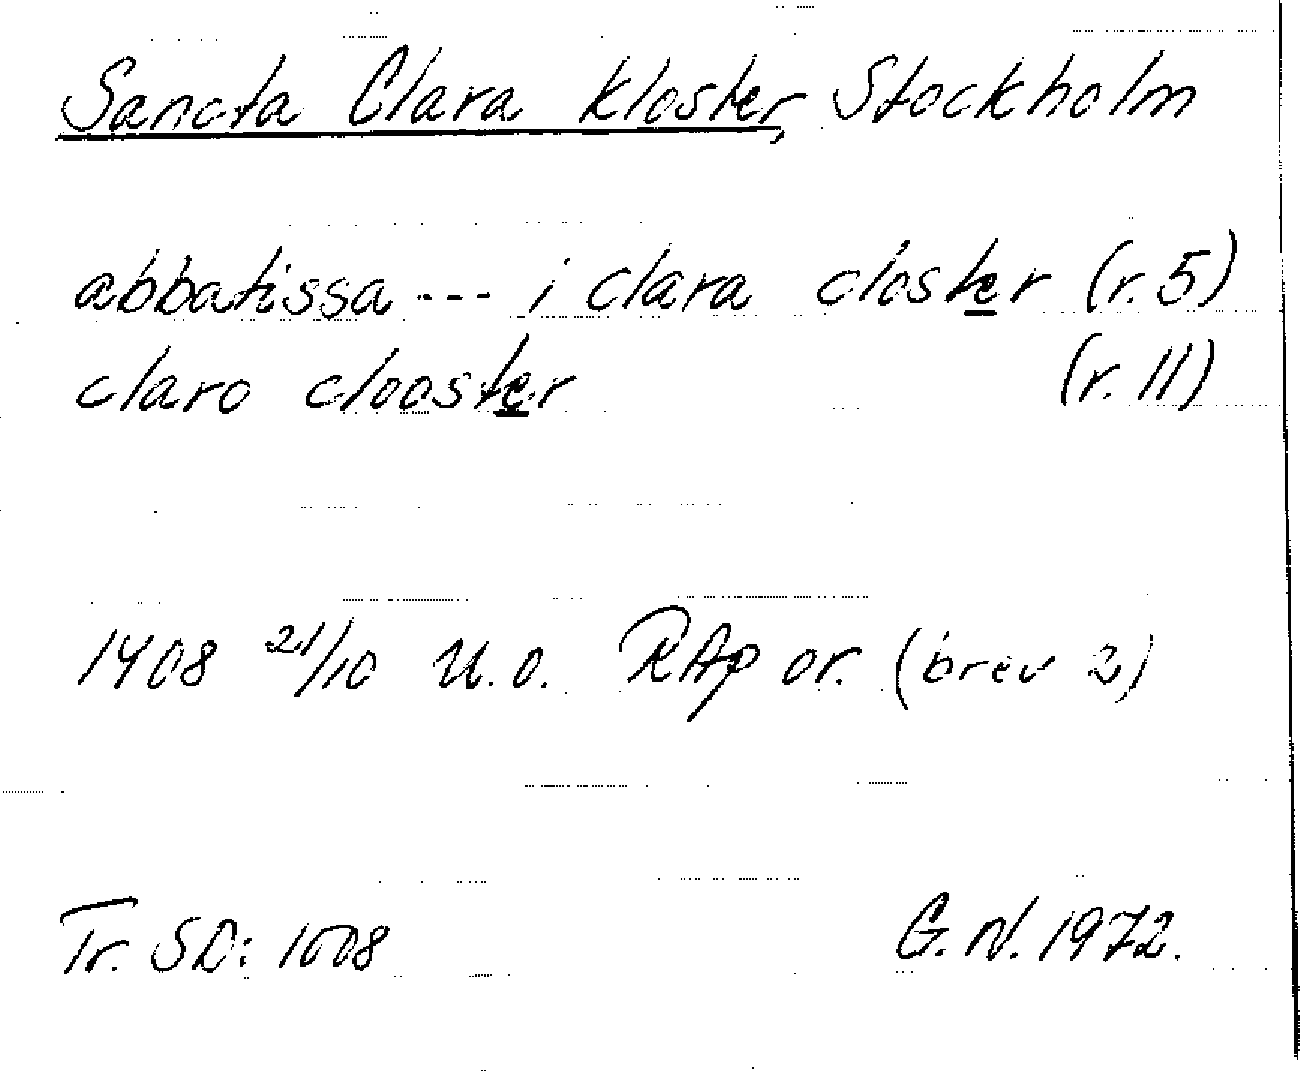 Sancta Clara kloster, Stockholm
abbatissa --- i clara closter (r. 5)
claro clooster (r. 11)
1408 21/10 u.o. RAp or. (brev 2)
Tr. SD: 1008 G.N. 1972.